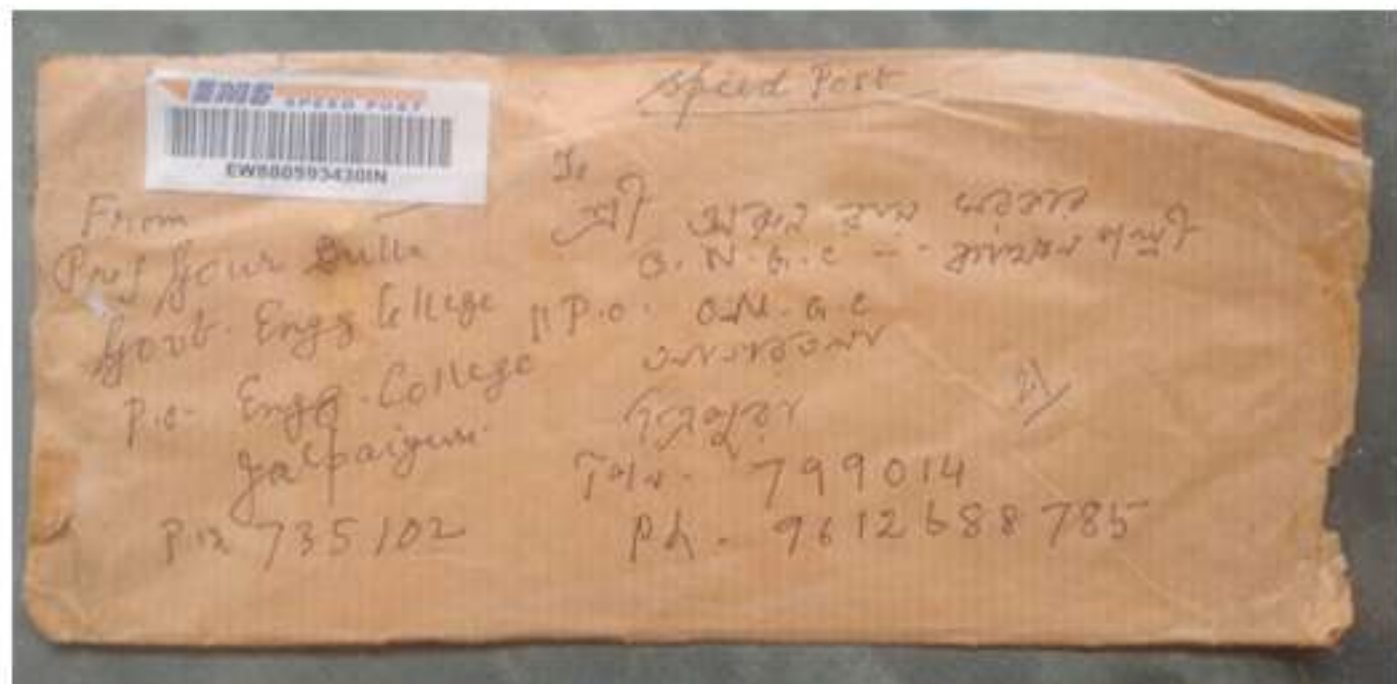 Speed Post
EMS SPEED POST
EW880593430IN
From
Prof Gour Dutta
Govt. Engg College
P.O- Engg. College
Jalpaiguri
Pin 735102
To
শ্রী
O.N.G.C -- পল্লী
P.O. O.N.G.C
আগরতলা
ত্রিপুরা
পিন- 799014
Ph - 9612688785